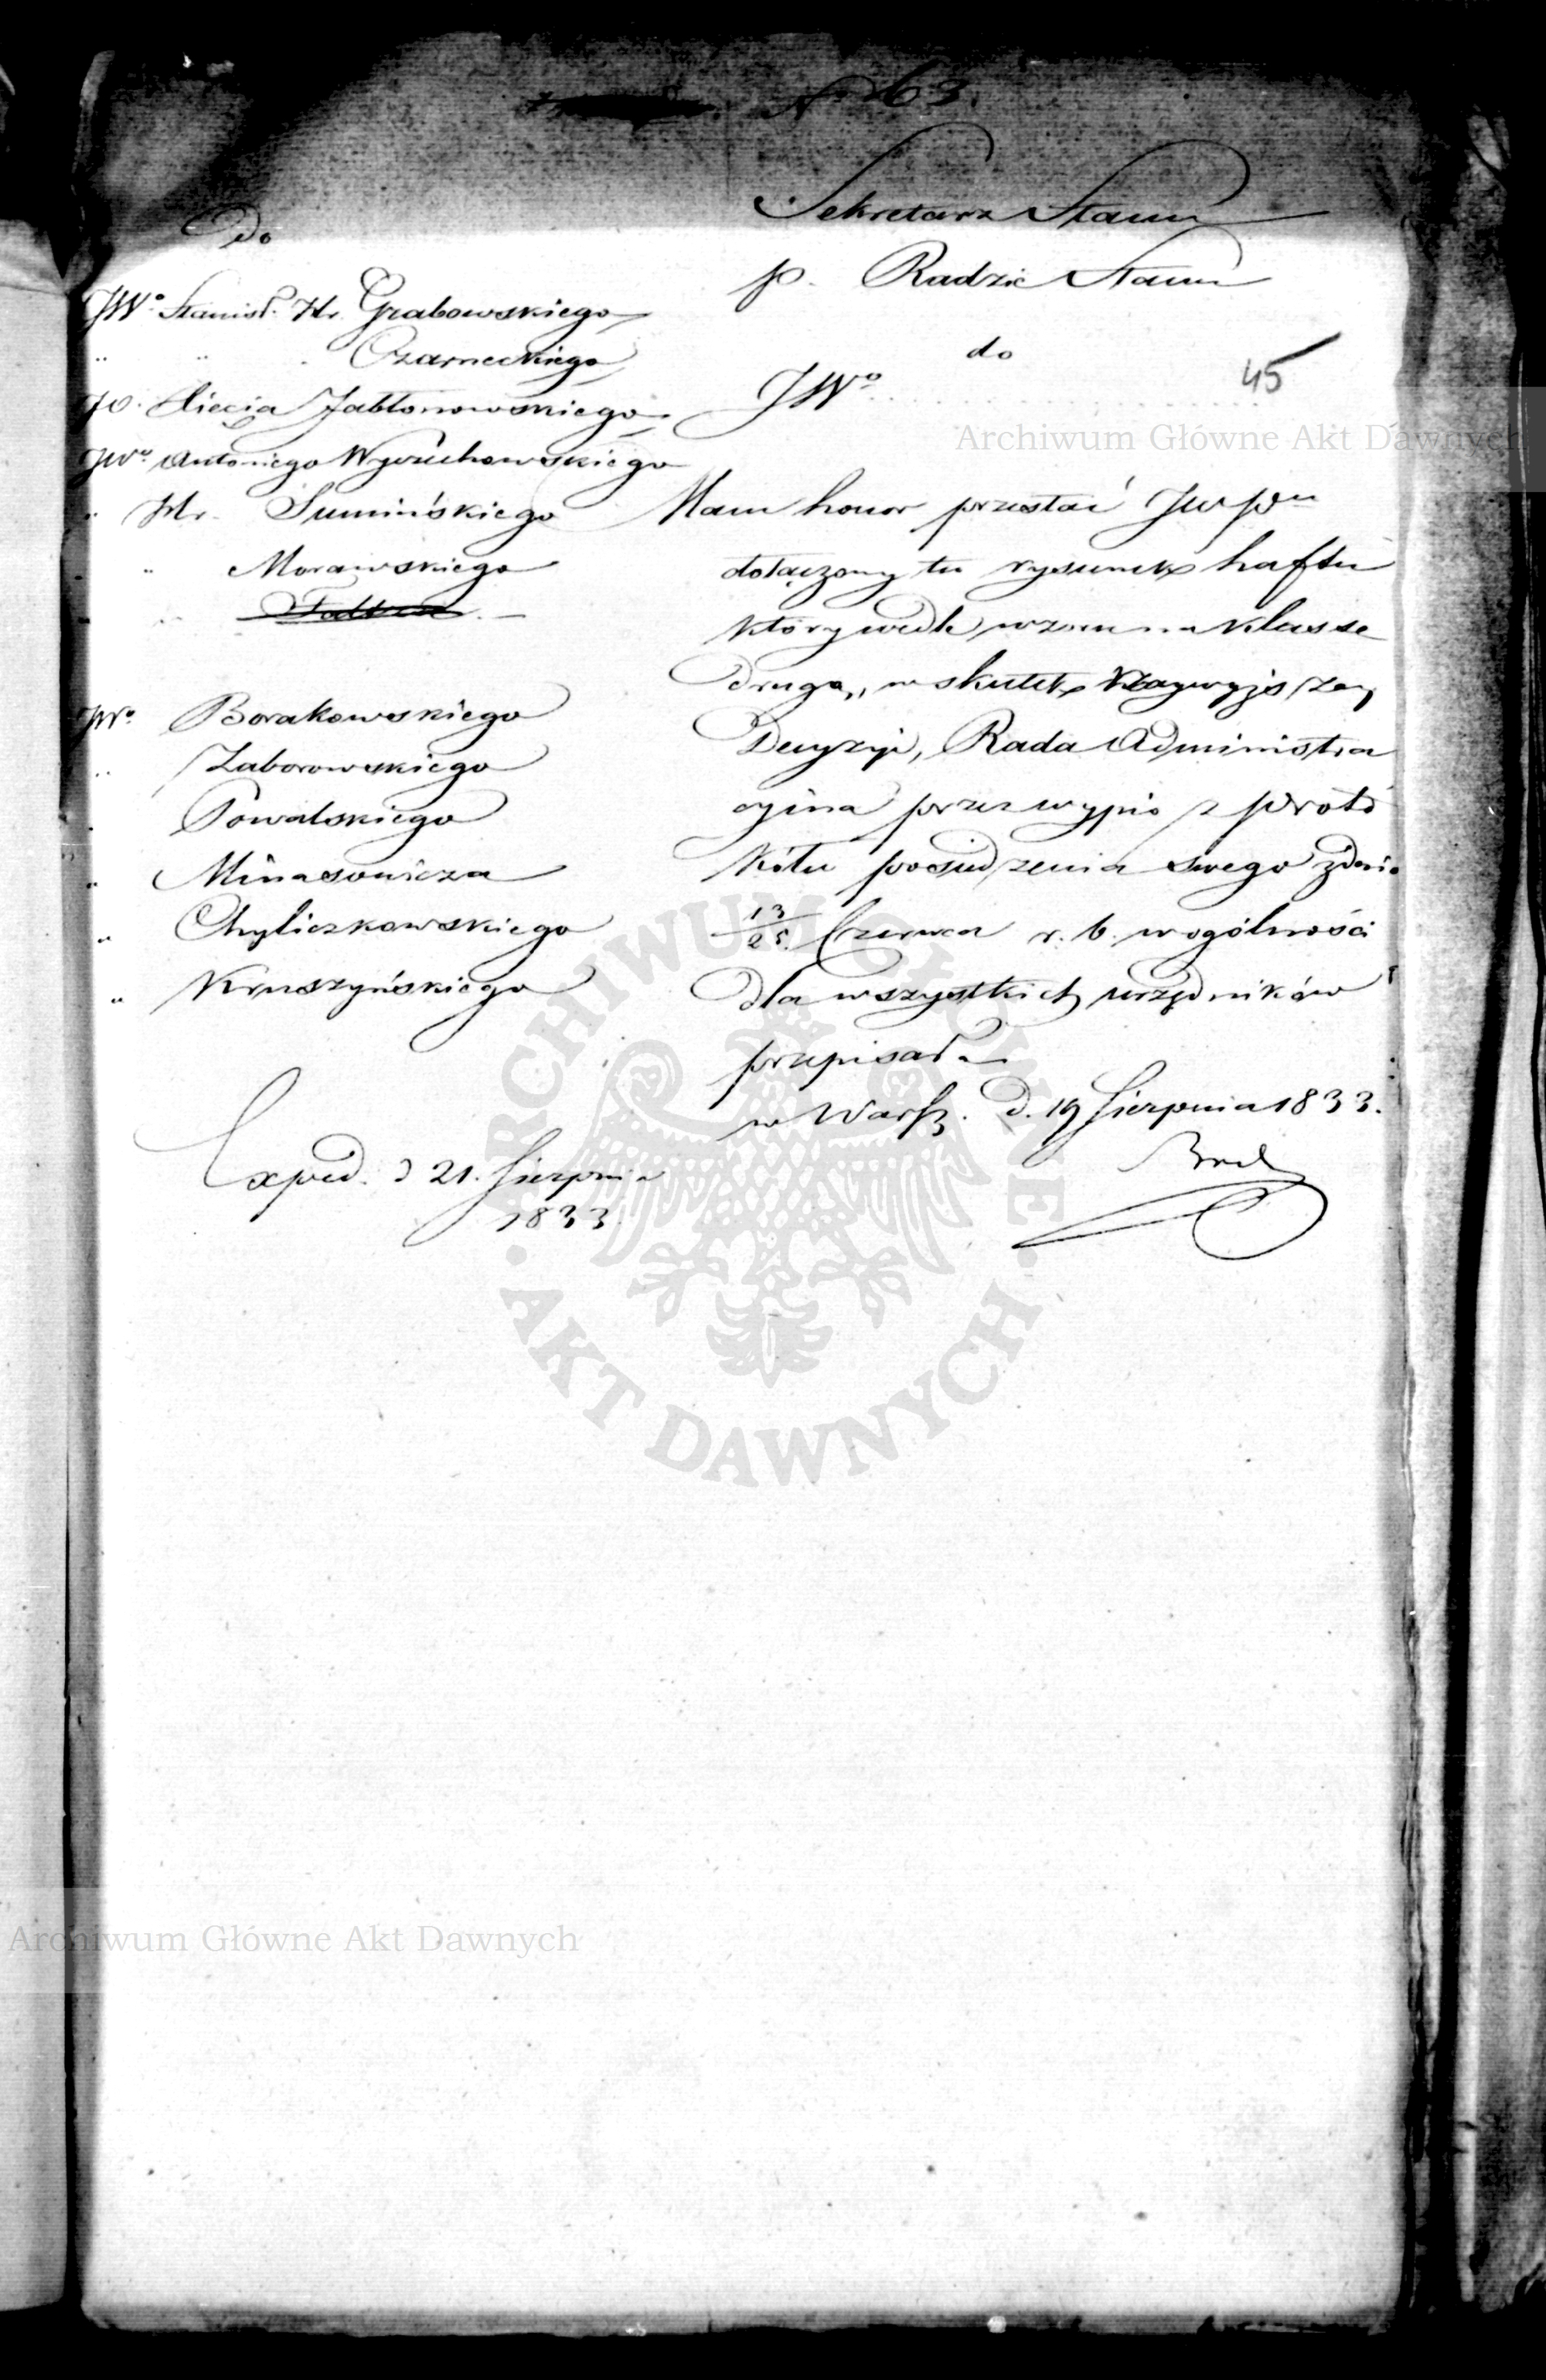 No 63.
Sekretarz Stanu
p. Radzie Stanu
do
JWo
45
Do
JWo Stanisł. Hr. Grabowskiego
" " Czarneckiego
JO. Xięcia Jabłonowskiego
JWo Antoniego Wyczechowskiego
" Hr. Sumińskiego
" Morawskiego
JWo Borakowskiego
" Zaborowskiego
" Powalskiego
" Minasowicza
" Chyliczkowskiego
" Kruszyńskiego
Exped. d 21. Sierpnia
1833.
Mam honor przesłać JWPu
dołączony tu rysunek haftu
który wedle wzoru na klassę
drugą, w skutek Najwyższej
Decyzyi, Rada Administra
cyina przez wypis z proto
kółu posiedzenia swego z dnia
13/25 Czerwca r. b. w ogólności
dla wszystkich urzędników
przepisała
w Warsz. d. 19 Sierpnia 1833.
Archiwum Główne Akt Dawnych
ARCHIWUM GŁÓWNE
AKT DAWNYCH
Archiwum Główne Akt Dawnych